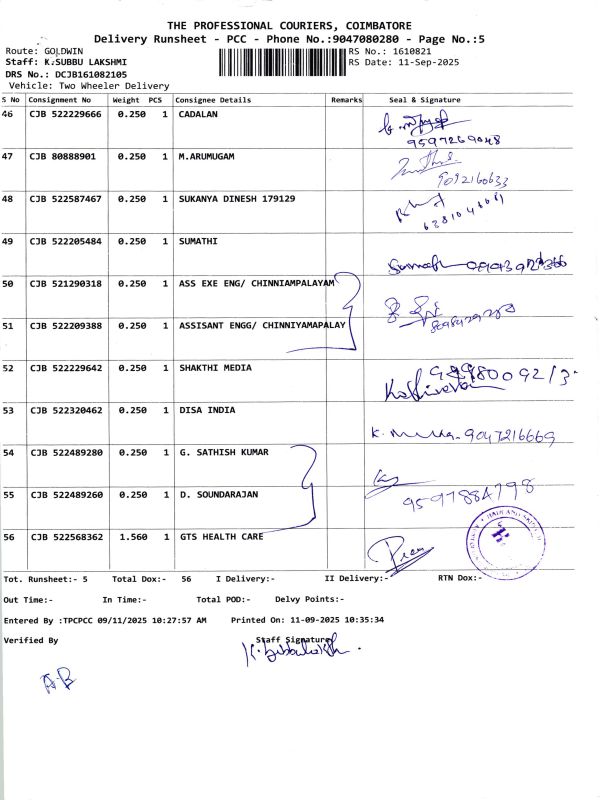 THE PROFESSIONAL COURIERS, COIMBATORE
Delivery Runsheet - PCC - Phone No.:9047080280 - Page No.:5
Route: GOLDWIN RS No.: 1610821
Staff: K.SUBBU LAKSHMI RS Date: 11-Sep-2025
DRS No.: DCJB161082105
Vehicle: Two Wheeler Delivery
S No Consignment No Weight PCS Consignee Details Remarks Seal & Signature
46 CJB 522229666 0.250 1 CADALAN
9597269048
47 CJB 80888901 0.250 1 M.ARUMUGAM
9092160633
48 CJB 522587467 0.250 1 SUKANYA DINESH 179129
49 CJB 522205484 0.250 1 SUMATHI
50 CJB 521290318 0.250 1 ASS EXE ENG/ CHINNIAMPALAYAM
51 CJB 522209388 0.250 1 ASSISANT ENGG/ CHINNIYAMAPALAY
52 CJB 522229642 0.250 1 SHAKTHI MEDIA
53 CJB 522320462 0.250 1 DISA INDIA
9047216669
54 CJB 522489280 0.250 1 G. SATHISH KUMAR
55 CJB 522489260 0.250 1 D. SOUNDARAJAN
9597884798
56 CJB 522568362 1.560 1 GTS HEALTH CARE
Tot. Runsheet:- 5 Total Dox:- 56 I Delivery:- II Delivery:- RTN Dox:-
Out Time:- In Time:- Total POD:- Delvy Points:-
Entered By :TPCPCC 09/11/2025 10:27:57 AM Printed On: 11-09-2025 10:35:34
Verified By Staff Signature
A.B